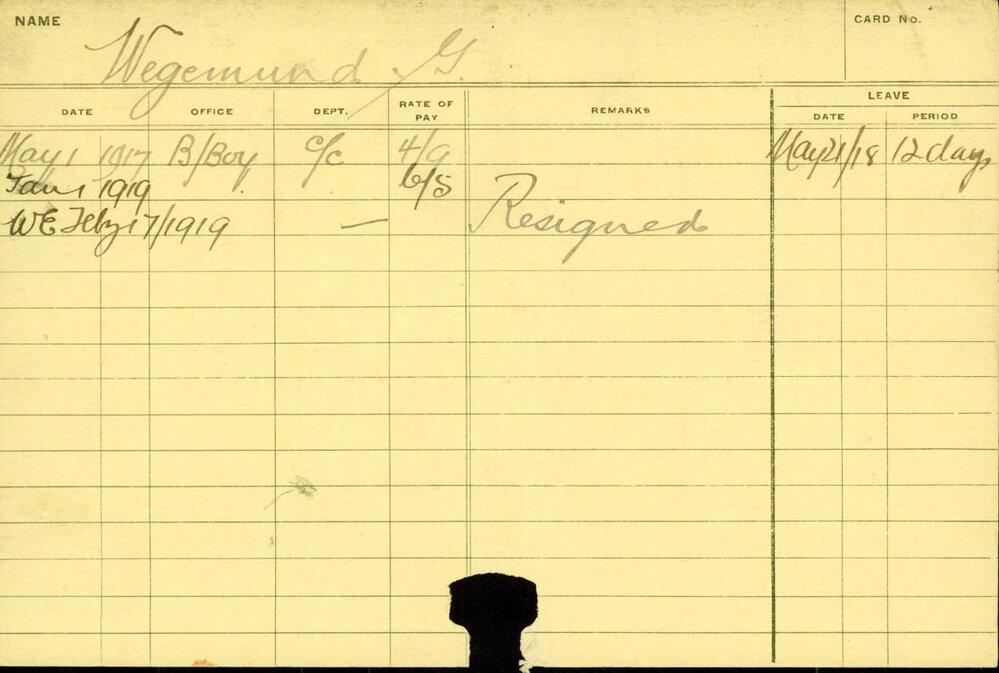 NAME
CARD No.
Wegemund G.
DATE OFFICE DEPT. RATE OF PAY REMARKS LEAVE DATE PERIOD
May 1 1917 B/Boy C/C 4/9 May 21/18 12 days
Jan 1 1919 6/5
WE Feby 17/1919 — Resigned